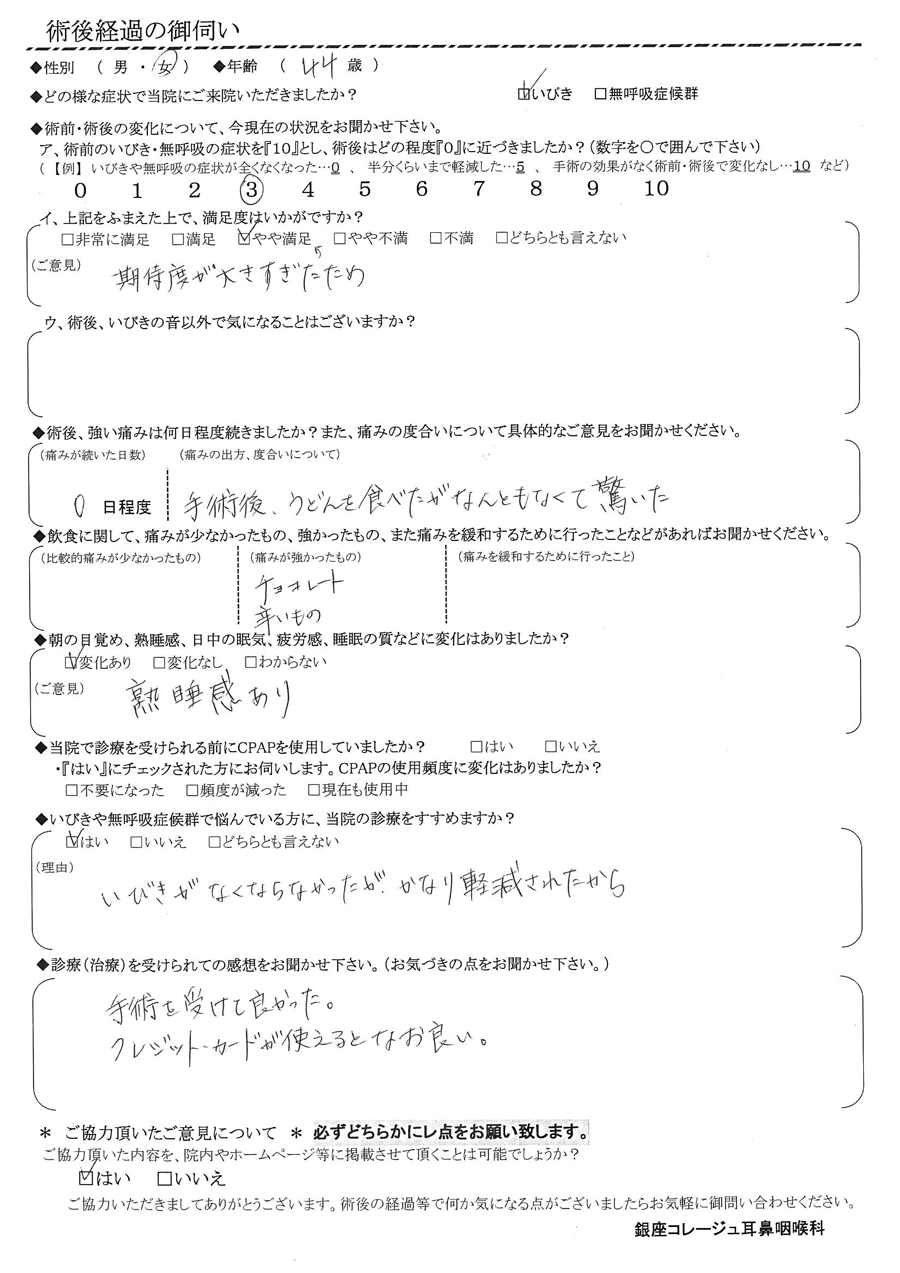 術後経過の御伺い
◆性別 ( 男 ・ 女 ) ◆年齢 ( 44 歳 )
◆どの様な症状で当院にご来院いただきましたか? ☑いびき □無呼吸症候群
◆術前・術後の変化について、今現在の状況をお聞かせ下さい。
ア、術前のいびき・無呼吸の症状を『10』とし、術後はどの程度『0』に近づきましたか?(数字を○で囲んで下さい)
(【例】いびきや無呼吸の症状が全くなくなった…0 、 半分くらいまで軽減した…5 、 手術の効果がなく術前・術後で変化なし…10 など)
0 1 2 ③ 4 5 6 7 8 9 10
イ、上記をふまえた上で、満足度はいかがですか?
□非常に満足 □満足 ☑やや満足 □やや不満 □不満 □どちらとも言えない
(ご意見)
期待度が大きすぎたため
ウ、術後、いびきの音以外で気になることはございますか?
◆術後、強い痛みは何日程度続きましたか?また、痛みの度合いについて具体的なご意見をお聞かせください。
(痛みが続いた日数) (痛みの出方、度合いについて)
0 日程度 手術後、うどんを食べたがなんともなくて驚いた
◆飲食に関して、痛みが少なかったもの、強かったもの、また痛みを緩和するために行ったことなどがあればお聞かせください。
(比較的痛みが少なかったもの) (痛みが強かったもの) (痛みを緩和するために行ったこと)
チョコレート
辛いもの
◆朝の目覚め、熟睡感、日中の眠気、疲労感、睡眠の質などに変化はありましたか?
☑変化あり □変化なし □わからない
(ご意見)
熟睡感あり
◆当院で診療を受けられる前にCPAPを使用していましたか? □はい □いいえ
・『はい』にチェックされた方にお伺いします。CPAPの使用頻度に変化はありましたか?
□不要になった □頻度が減った □現在も使用中
◆いびきや無呼吸症候群で悩んでいる方に、当院の診療をすすめますか?
☑はい □いいえ □どちらとも言えない
(理由)
いびきがなくならなかったが、かなり軽減されたから
◆診療(治療)を受けられての感想をお聞かせ下さい。(お気づきの点をお聞かせ下さい。)
手術を受けて良かった。
クレジット・カードが使えるとなお良い。
* ご協力頂いたご意見について * 必ずどちらかにレ点をお願い致します。
ご協力頂いた内容を、院内やホームページ等に掲載させて頂くことは可能でしょうか?
☑はい □いいえ
ご協力いただきましてありがとうございます。術後の経過等で何か気になる点がございましたらお気軽に御問い合わせください。
銀座コレージュ耳鼻咽喉科